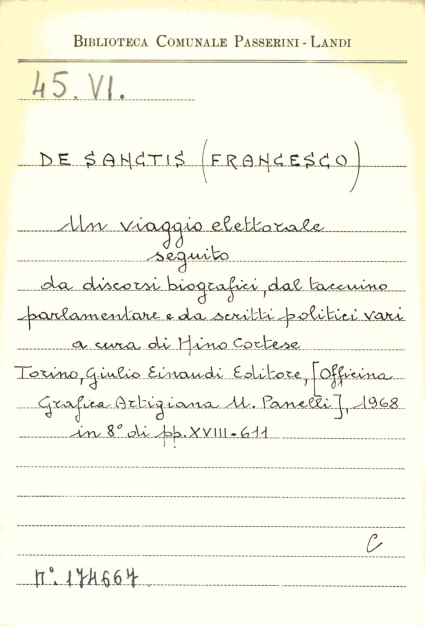 BIBLIOTECA COMUNALE PASSERINI - LANDI
45. VI.
DE SANCTIS (FRANCESCO)
Un viaggio elettorale
seguito
da discorsi biografici, dal taccuino
parlamentare e da scritti politici vari
a cura di Nino Cortese
Torino, Giulio Einaudi Editore, [Officina
Grafica Artigiana U. Panelli], 1968
in 8° di pp. XVIII-611
C
n°. 174667